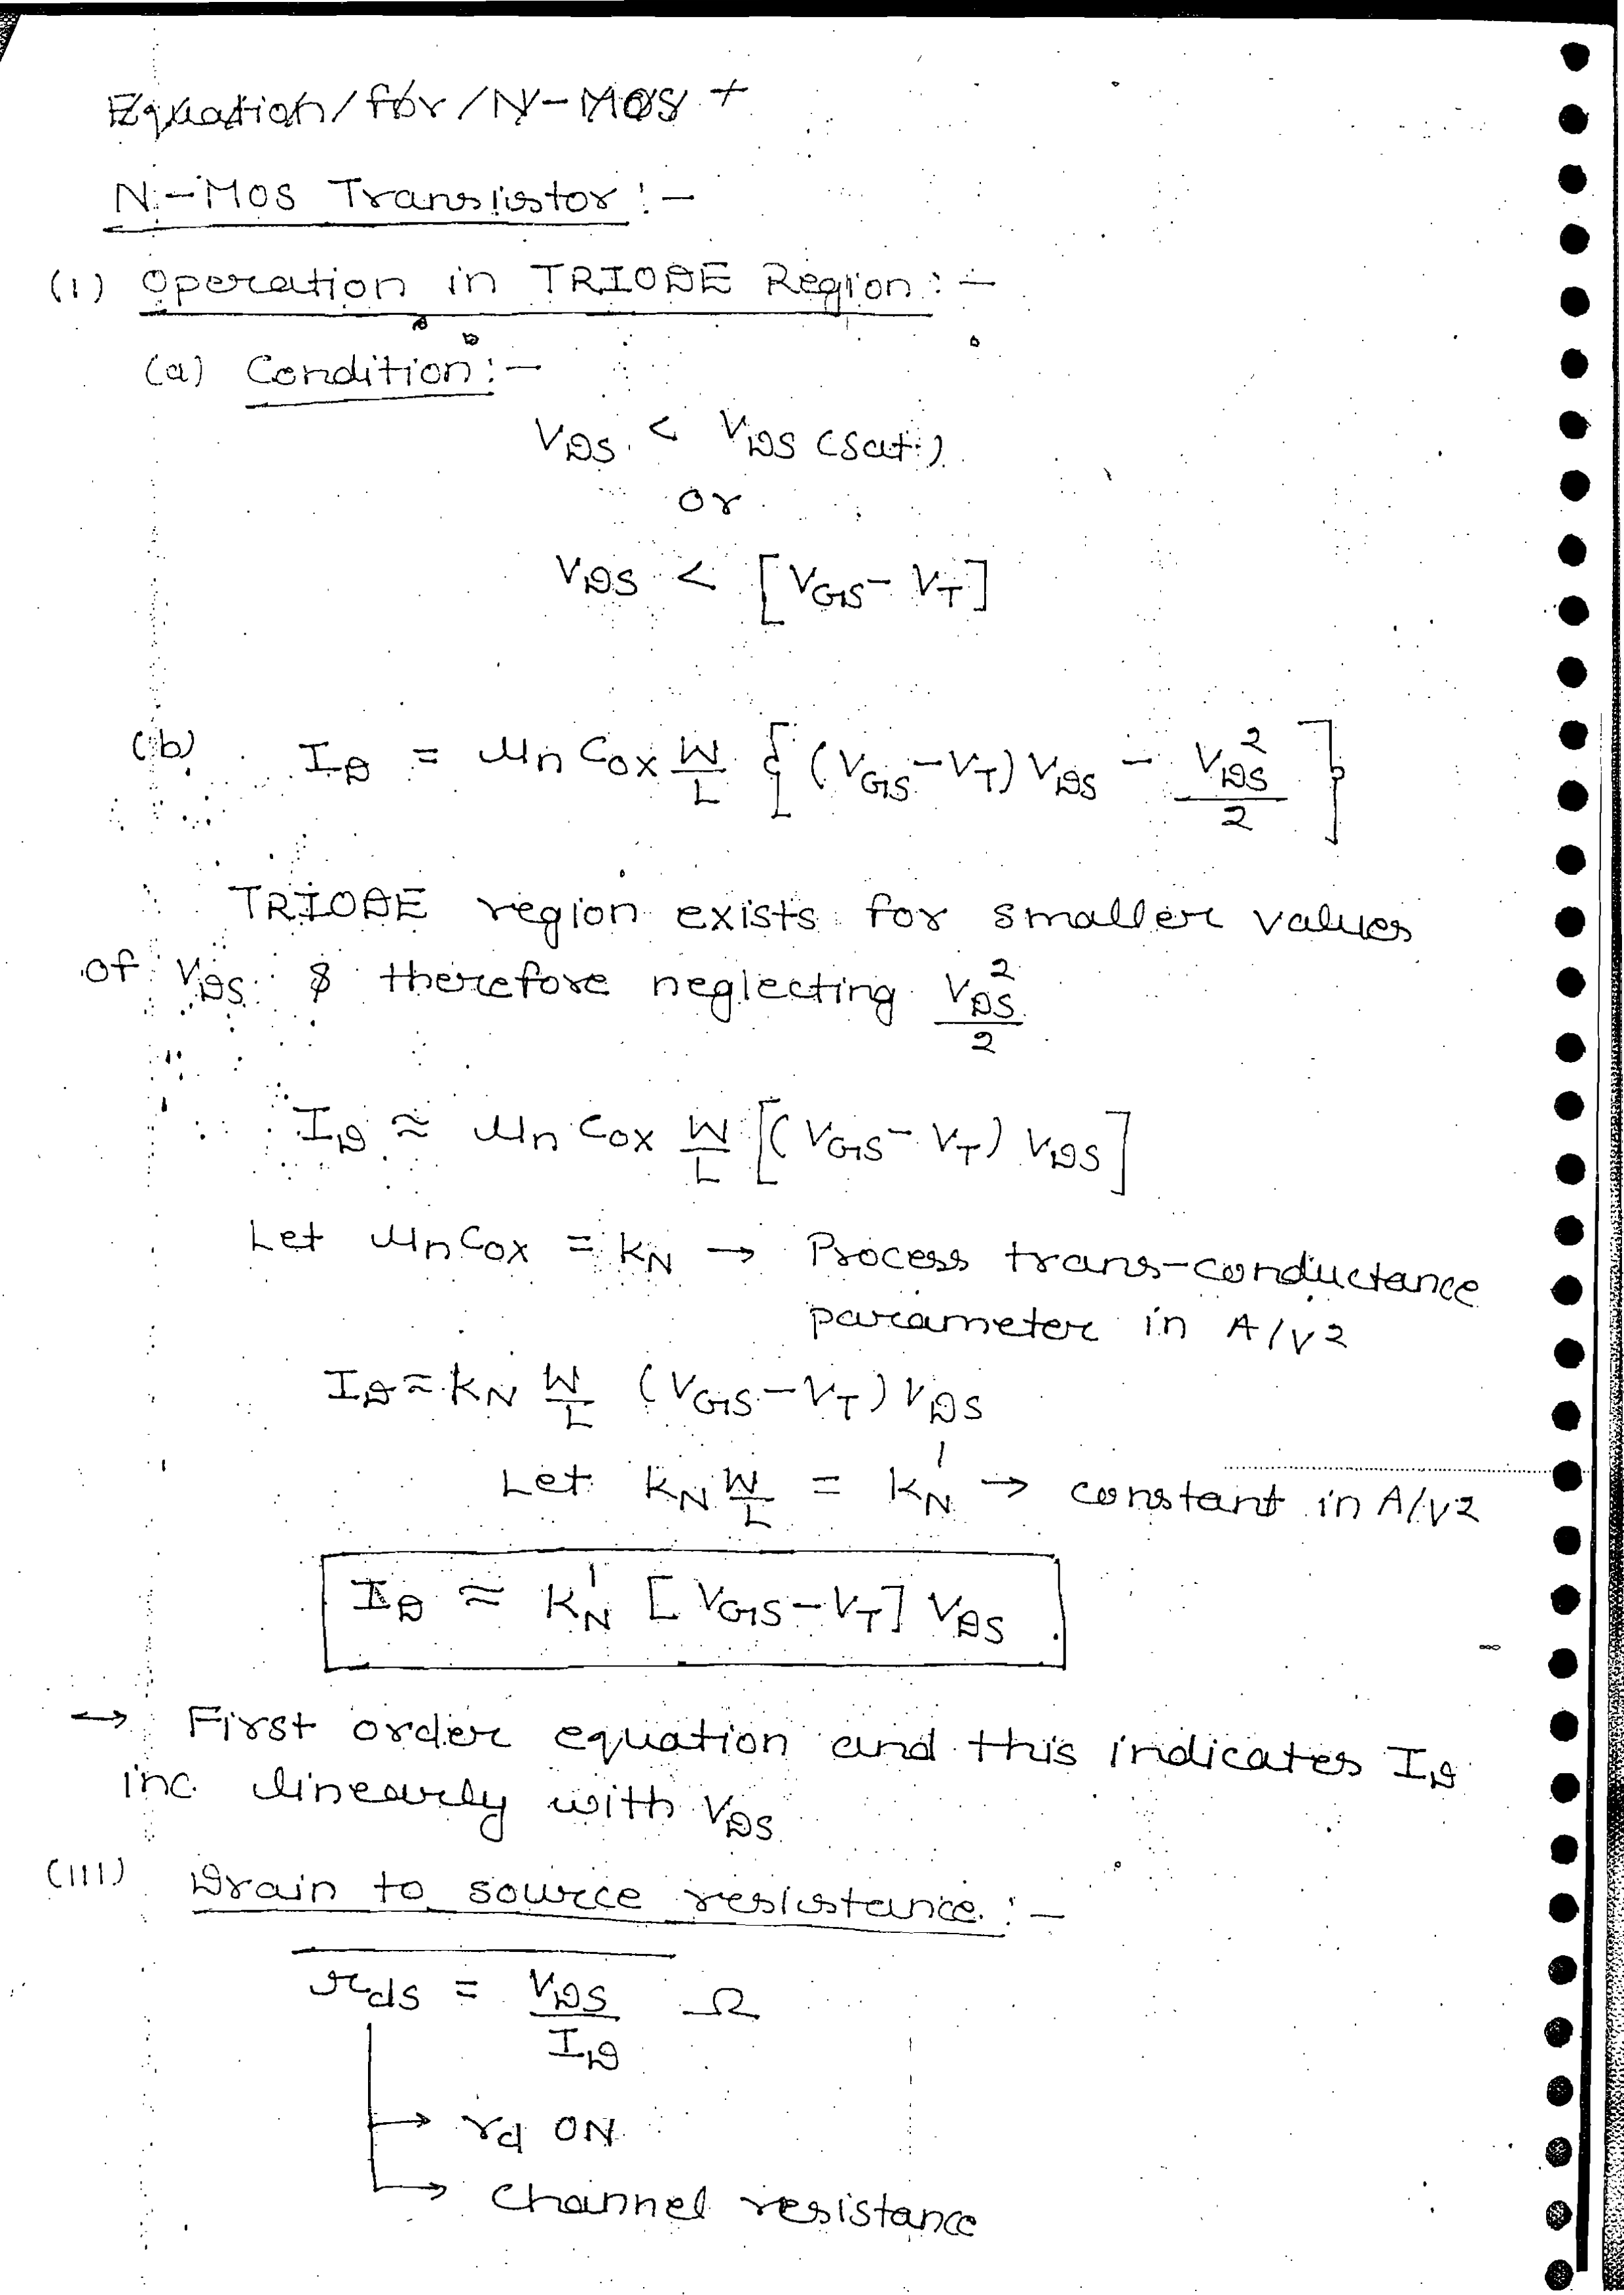 Equation for N-MOS
N-MOS Transistor :-
(i) Operation in TRIODE Region :-
(a) Condition :-
V_DS < V_DS (sat.)
or
V_DS < [V_GS - V_T]
(b) I_D = μn Cox W/L [(V_GS - V_T) V_DS - V_DS²/2]
TRIODE region exists for smaller values
of V_DS & therefore neglecting V_DS²/2
I_D ≈ μn Cox W/L [(V_GS - V_T) V_DS]
Let μn Cox = k_N → Process trans-conductance
parameter in A/V2
I_D ≈ k_N W/L (V_GS - V_T) V_DS
Let k_N W/L = k_N' → constant in A/V2
I_D ≈ K_N' [V_GS - V_T] V_DS
→ First order equation and this indicates I_D
inc. linearly with V_DS
(III) Drain to source resistance :-
r_ds = V_DS/I_D Ω
→ r_d ON
→ channel resistance